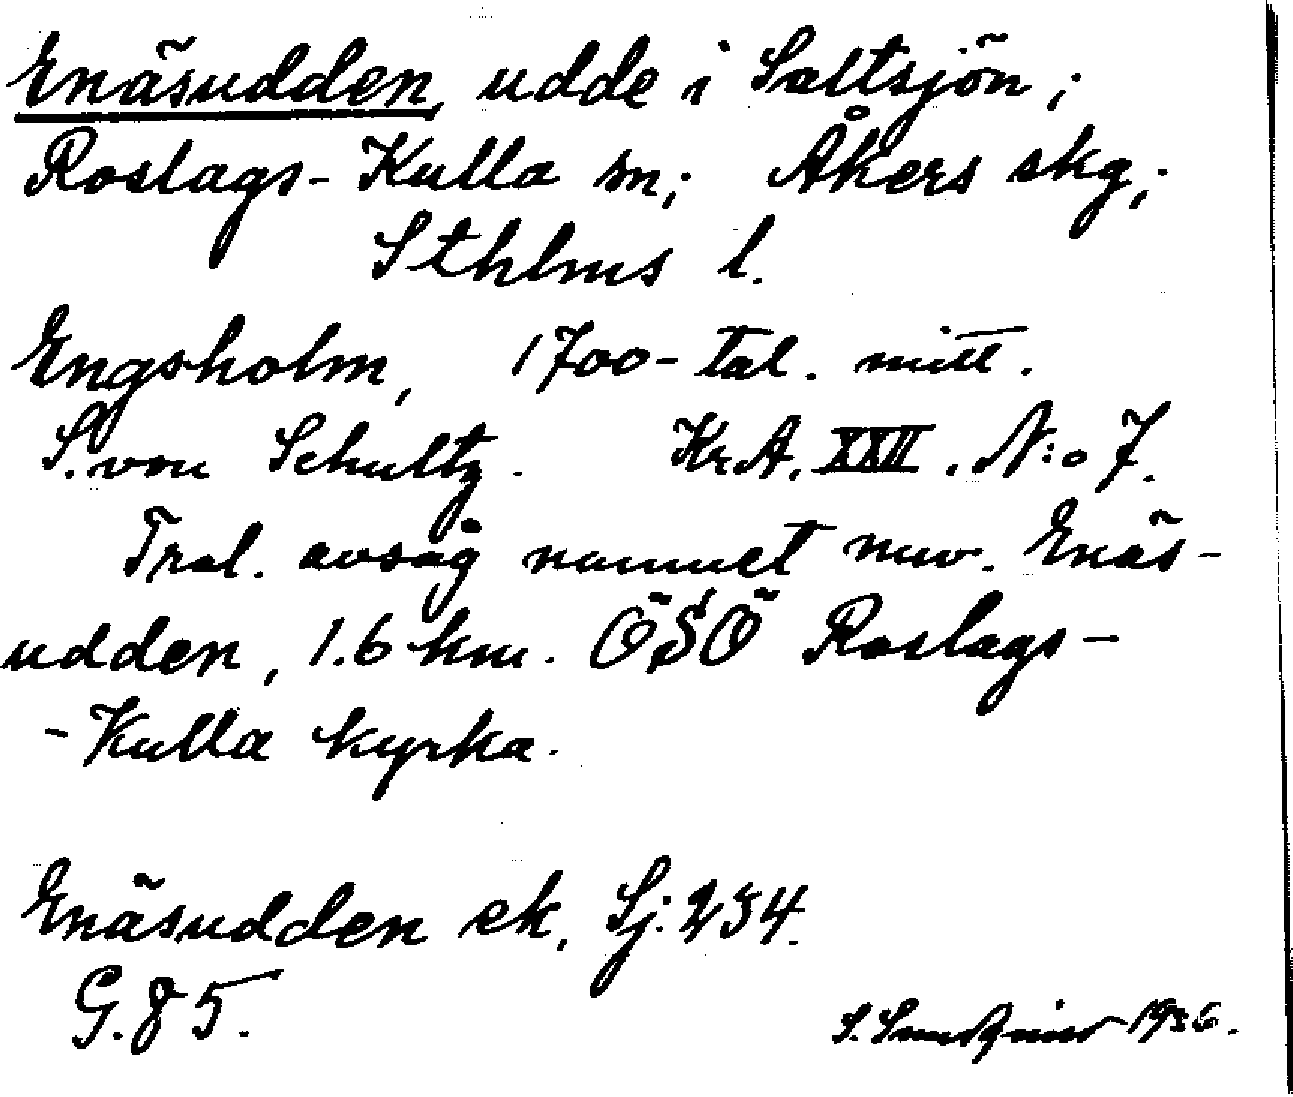 Enäsudden, udde i Saltsjön;
Roslags-Kulla sn; Åkers skg;
Sthlms l.
Engsholm, 1700-tal. mitt.
S. von Schultz. Kr.A. XXII. N:o 7.
Trol. avsåg namnet nuv. Enäs-
udden, 1.6 km. ÖSÖ Roslags-
-Kulla kyrka.
Enäsudden ek. Sj: 234.
G. 85.
S. 1936.